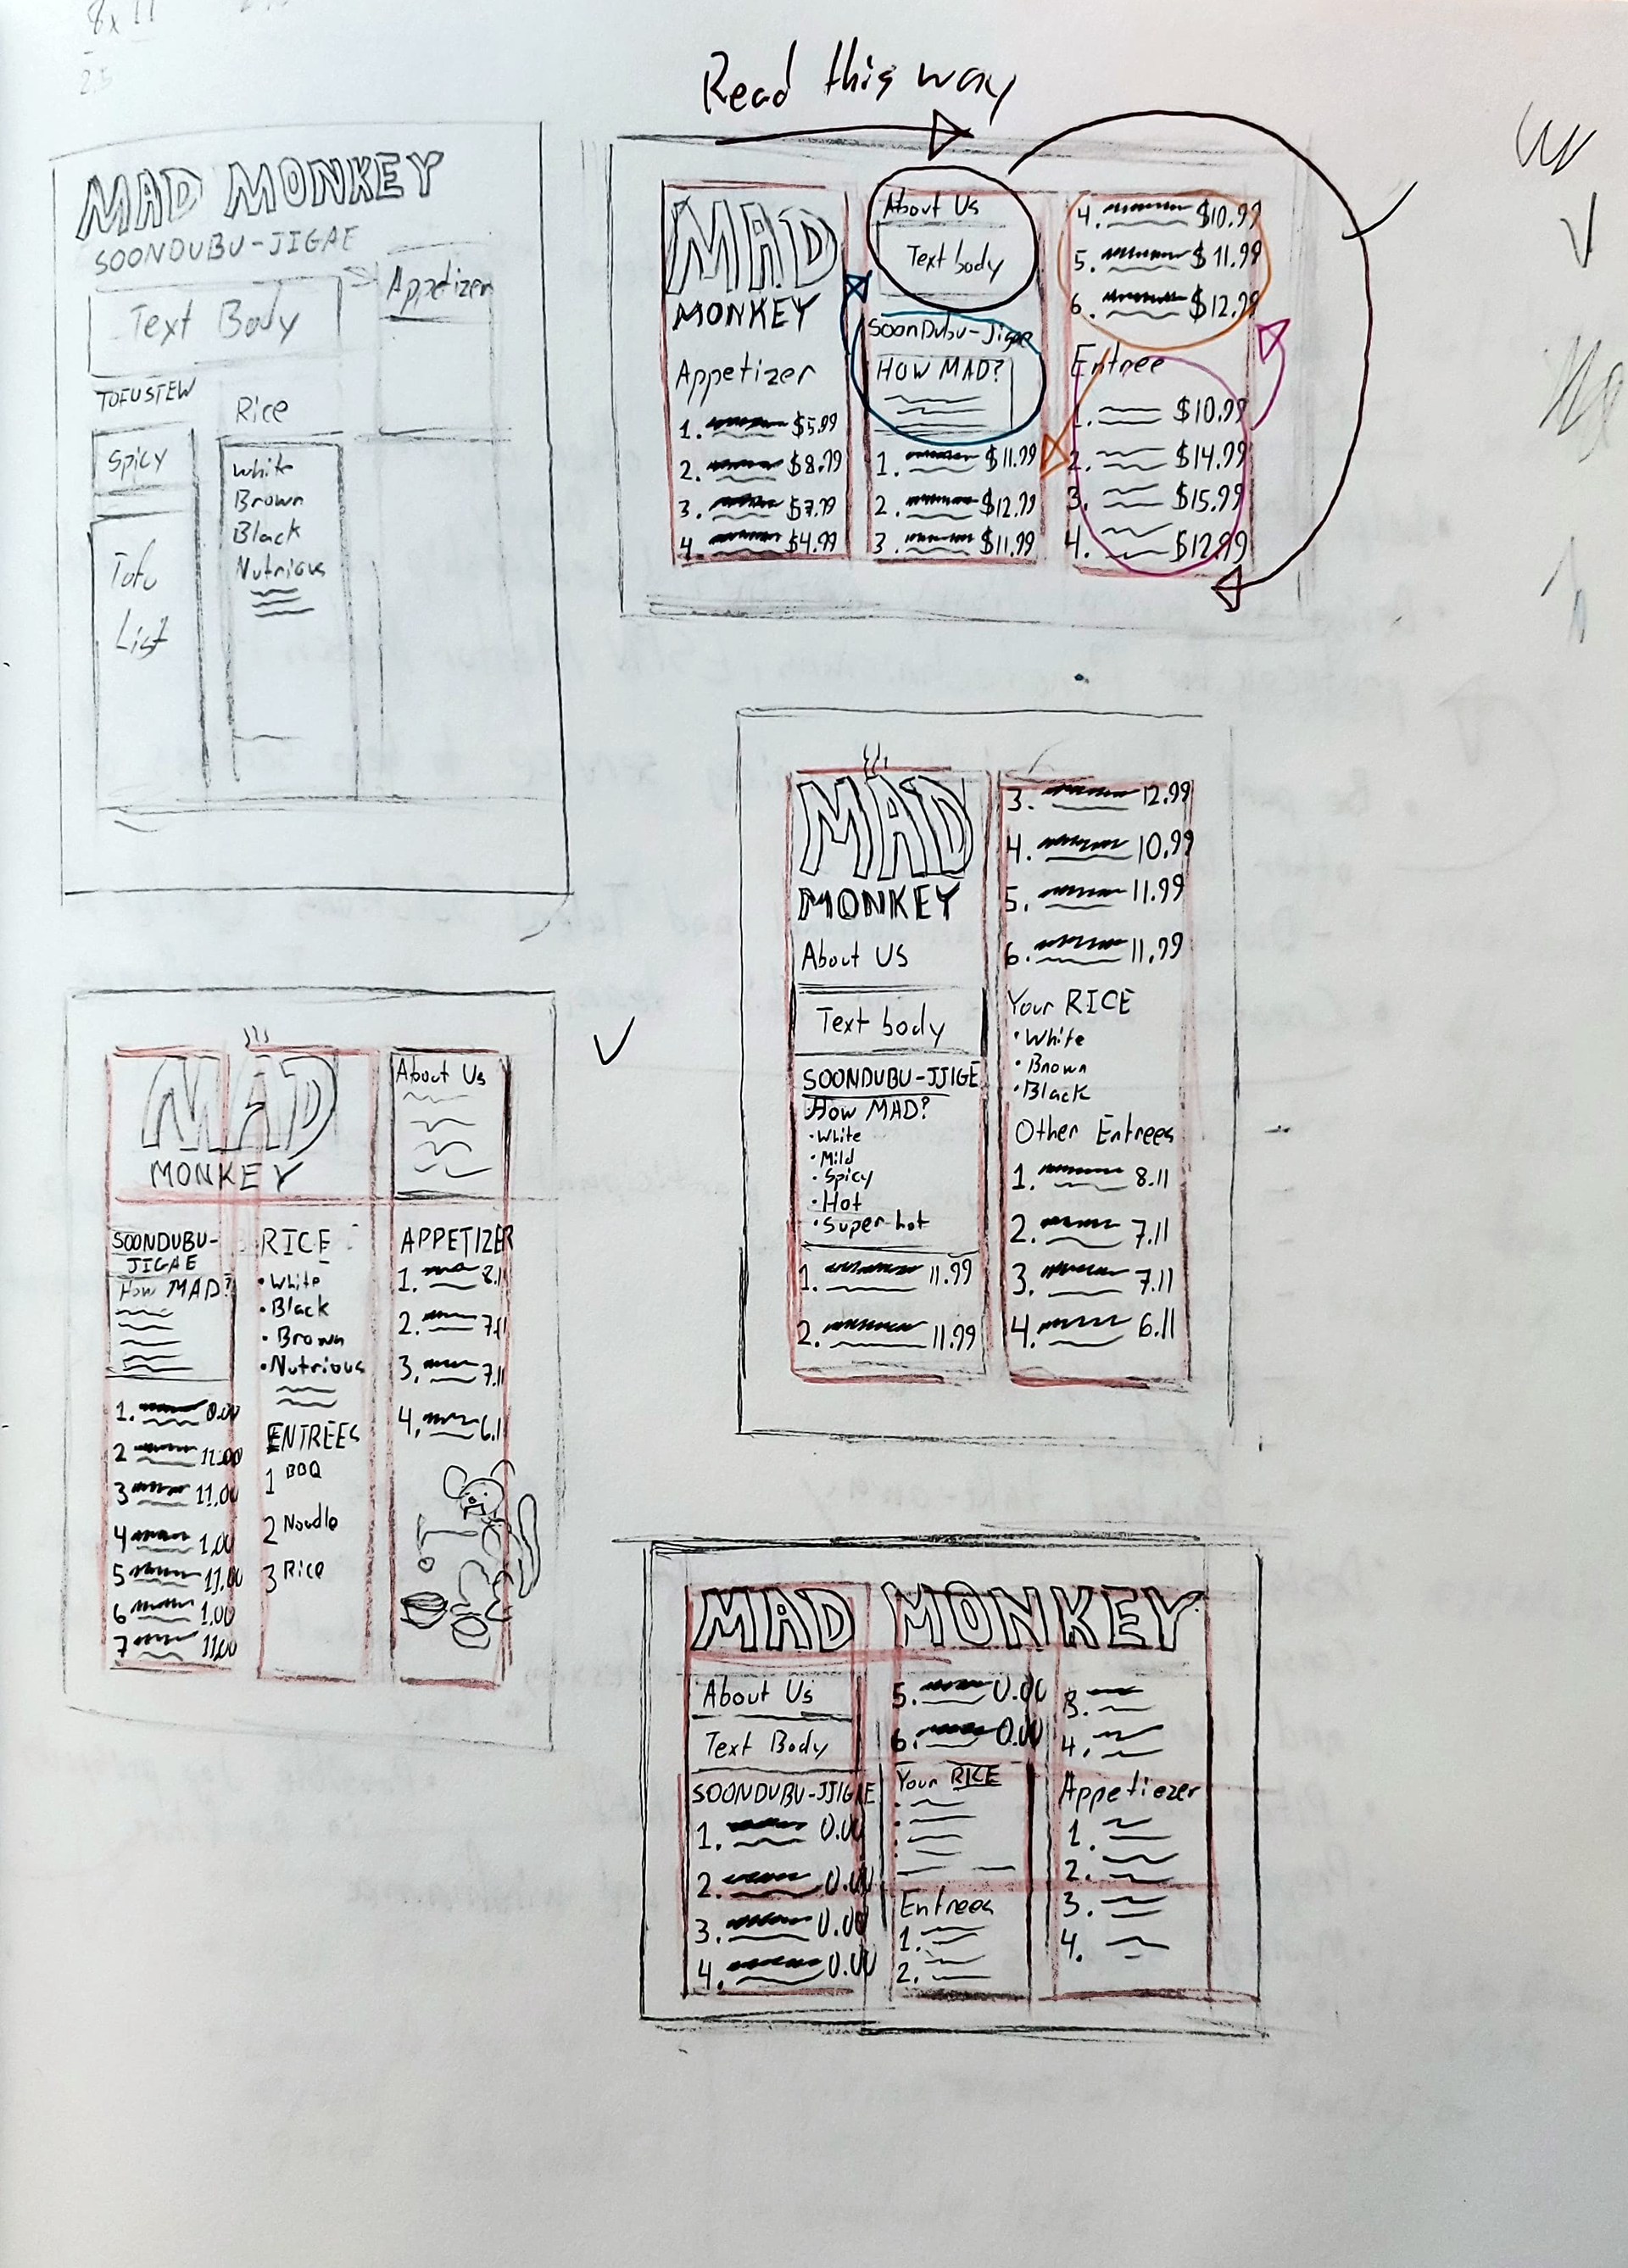 8x11
MAD MONKEY
SOONDUBU-JIGAE
Text Body
Appetizer
TOFUSTEW
Spicy
Tofu
List
Rice
White
Brown
Black
Nutrious
Read this way
MAD
MONKEY
Appetizer
1. $5.99
2. $8.99
3. $7.99
4. $4.99
About Us
Text body
SoonDubu-Jigae
HOW MAD?
1. $11.99
2. $12.99
3. $11.99
4. $10.99
5. $11.99
6. $12.99
Entree
1. $10.99
2. $14.99
3. $15.99
4. $12.99
MAD
MONKEY
About US
Text body
SOONDUBU-JJIGE
How MAD?
·White
·Mild
·Spicy
·Hot
·Super-hot
1. 11.99
2. 11.99
3. 12.99
4. 10.99
5. 11.99
6. 11.99
Your RICE
·White
·Brown
·Black
Other Entrees
1. 8.11
2. 7.11
3. 7.11
4. 6.11
MAD
MONKEY
About Us
SOONDUBU-
JIGAE
How MAD?
1. 0.00
2 11.00
3 11.00
4 1.00
5 11.00
6 1.00
7 11.00
RICE
•White
•Black
•Brown
•Nutrious
ENTREES
1 BBQ
2 Noodle
3 Rice
APPETIZER
1. 8.11
2. 7.11
3. 7.11
4. 6.11
MAD MONKEY
About Us
Text Body
SOONDUBU-JJIGAE
1. 0.00
2. 0.00
3. 0.00
4. 0.00
5. 0.00
6. 0.00
Your RICE
Entrees
1.
2.
3.
4.
Appetiezer
1.
2.
3.
4.